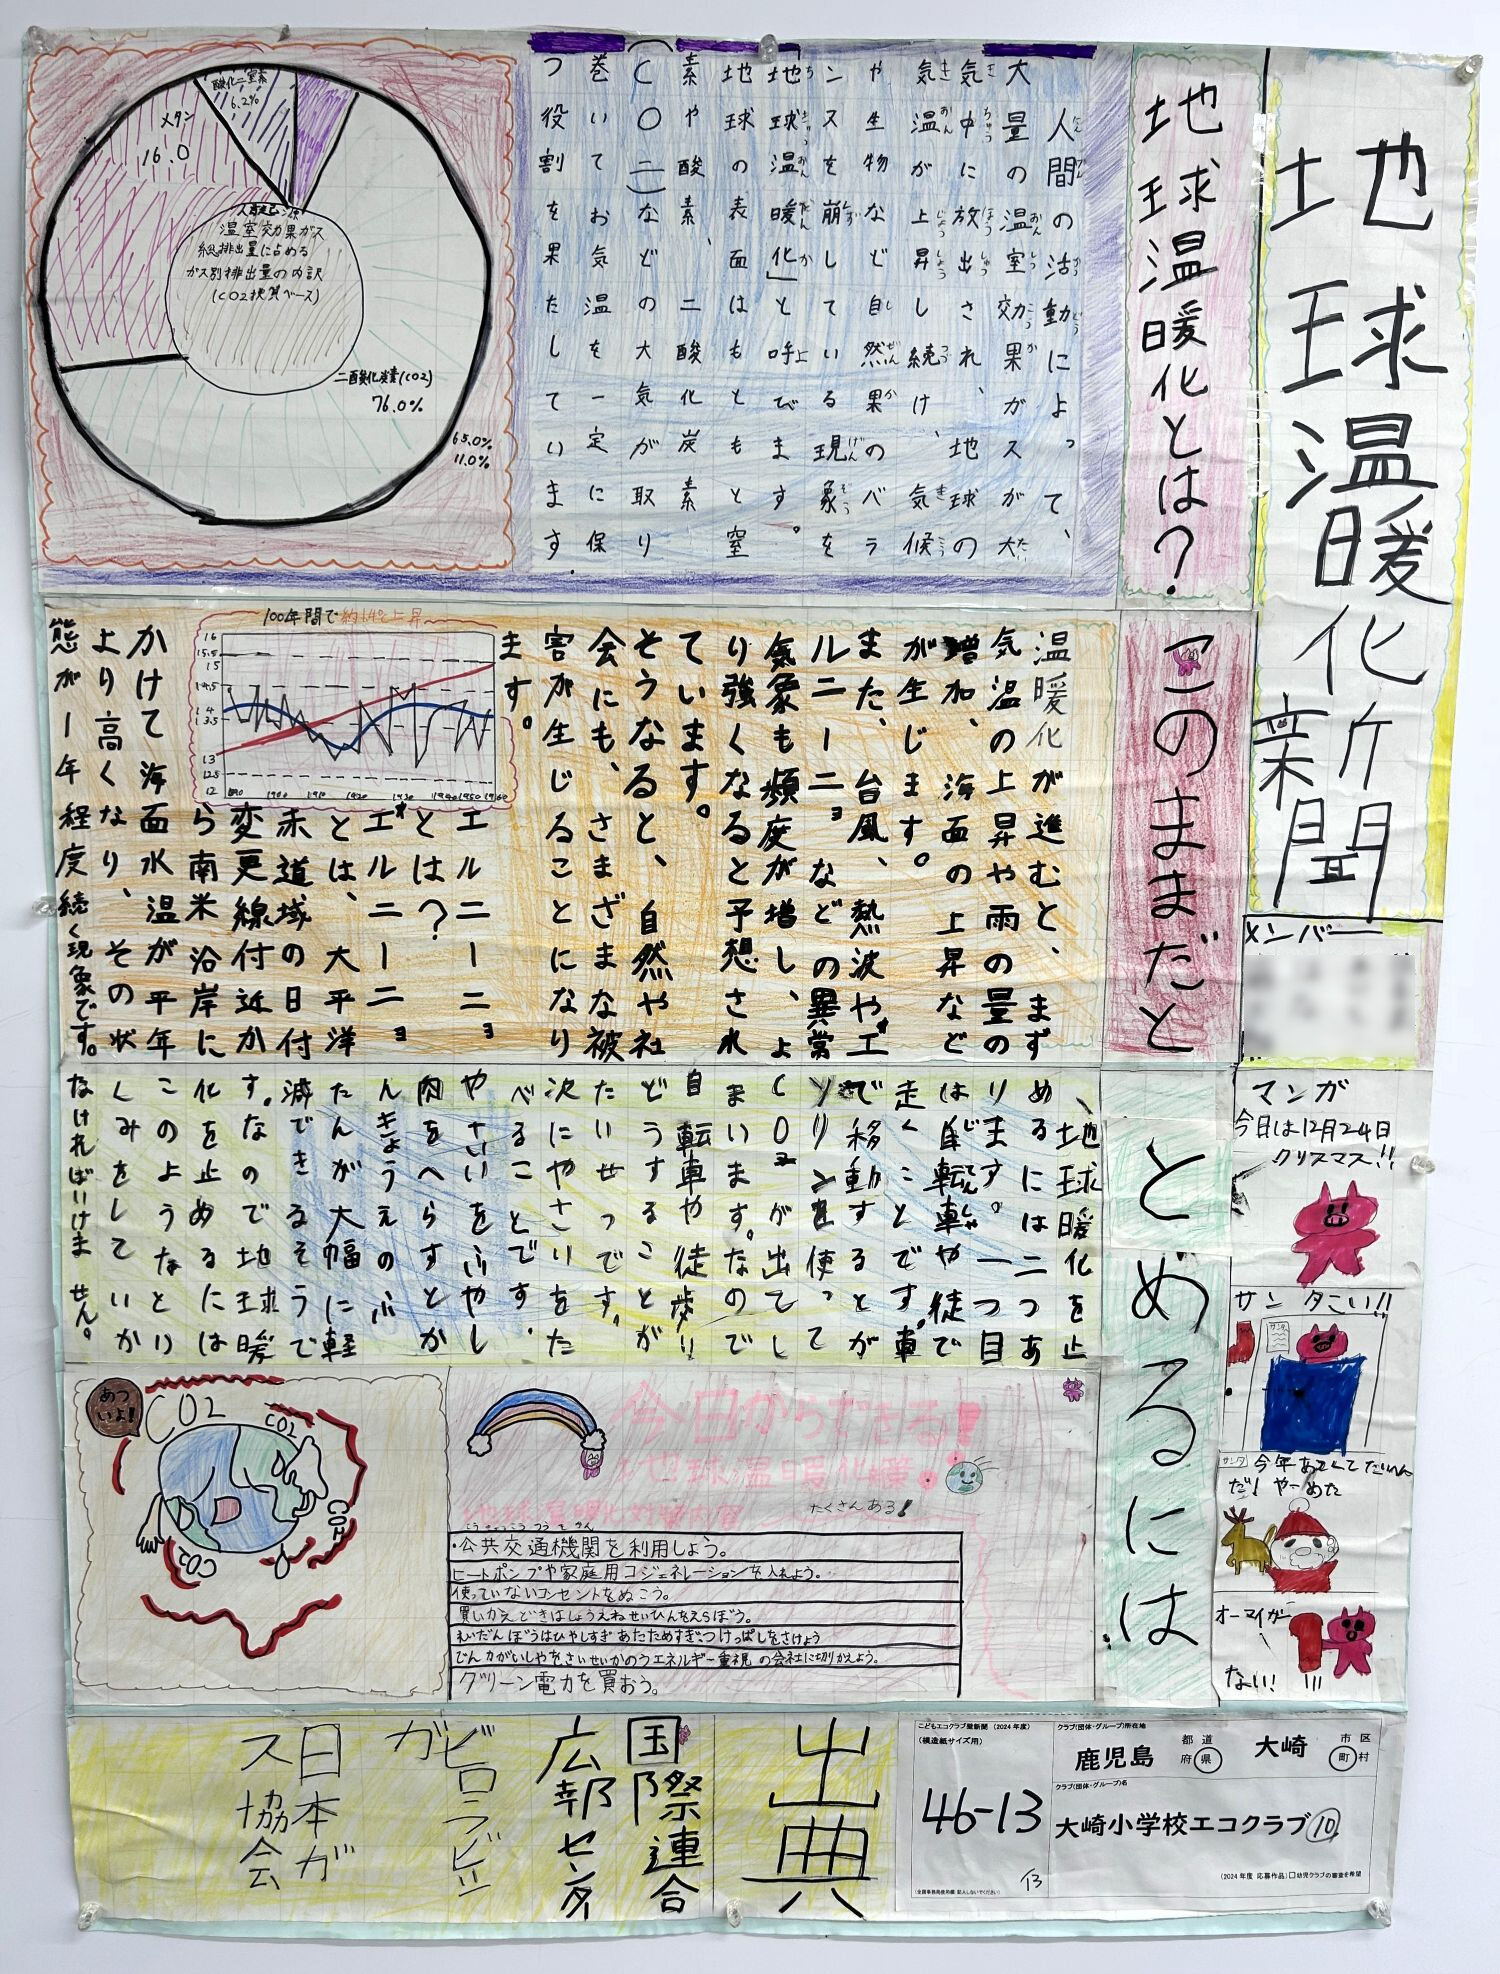 地球温暖化新聞
メンバー
地球温暖化とは?
人間の活動によって、
大量の温室効果ガスが大
気中に放出され、地球の
気温が上昇し続け、気候
や生物など自然果のバラ
ンスを崩している現象を
「地球温暖化」と呼びます。
地球の表面はもともと窒
素や酸素、二酸化炭素
(CO二)などの大気が取り
巻いてお気温を一定に保
つ役割を果たしています.
酸化二窒素
6.2%
メタン
16.0
温室効果ガス
総排出量に占める
ガス別排出量の内訳
(CO2換算ベース)
二酸化炭素(CO2)
76.0%
65.0%
11.0%
このままだと
温暖化が進むと、まず
気温の上昇や雨の量の
増加、海面の上昇など
が生じます。
また、台風、熱波やエ
ルニーニョなどの異常
気象も頻度が増し、よ
り強くなると予想され
ています。
そうなると、自然や社
会にも、さまざまな被
割が生じることになり
ます。
100年間で約1.4℃上昇
16
15.5
15
14.5
14
13.5
13
12.5
12
1890 1900 1910 1920 1930 1940 1950 1960
エルニーニョ
とは?
エルニーニョ
とは、大平洋
赤道域の日付
変更線付近か
ら南米沿岸に
かけて海面水温が平年
より高くなり、その状
態が1年程度続く現象です。
とめるには
地球温暖化を止
めるには二つあ
ります。一つ目
は自転車や徒で
走くことです。車
で移動するとが
ソリンを使って
CO2が出てし
まいます。なので
自転車や徒歩り
どうすることが
たいせつです。
次にやさいをた
べることです.
やさいをふやし
肉をへらすとか
んきょうえのふ
たんが大幅に軽
減できるそうで
す。なので地球暖
化を止めるには
このようなとり
くみをしていか
なければいけません。
マンガ
今日は12月24日
クリスマス!!
サンタこい!!
サンタ
サンタ
今年あせくてたいへん
だ!やーめた
オーマイガー
ない! !!!
あつ
いよ!
CO2
CO2
CO2
今日からできる!
地球温暖化対策!!
たくさんある!
・公共交通機関を利用しよう。
ヒートポンプや家庭用コジェネレーションを入れよう。
使っていないコンセントをぬこう。
買いかえどきはしょうえねせいひんをえらぼう。
れいだんぼうはひやしすぎあたためすぎつけっぱしをさけよう
でんカがいしやをさいせいかのうエネルギー重視の会社に切りかえよう。
グリーン電力を買おう。
出典
国際連合
広報センター
ピロラビリ
ガ
日本ガ
ス協会
こどもエコクラブ壁新聞 (2024年度)
(模造紙サイズ用)
46-13
13
(全国事務局使用欄:記入しないでください)
クラブ(団体・グループ)所在地
鹿児島 都道府県 大崎 市区町村
クラブ(団体・グループ)名
大崎小学校エコクラブ⑩
(2024年度 応募作品) □幼児クラブの審査を希望